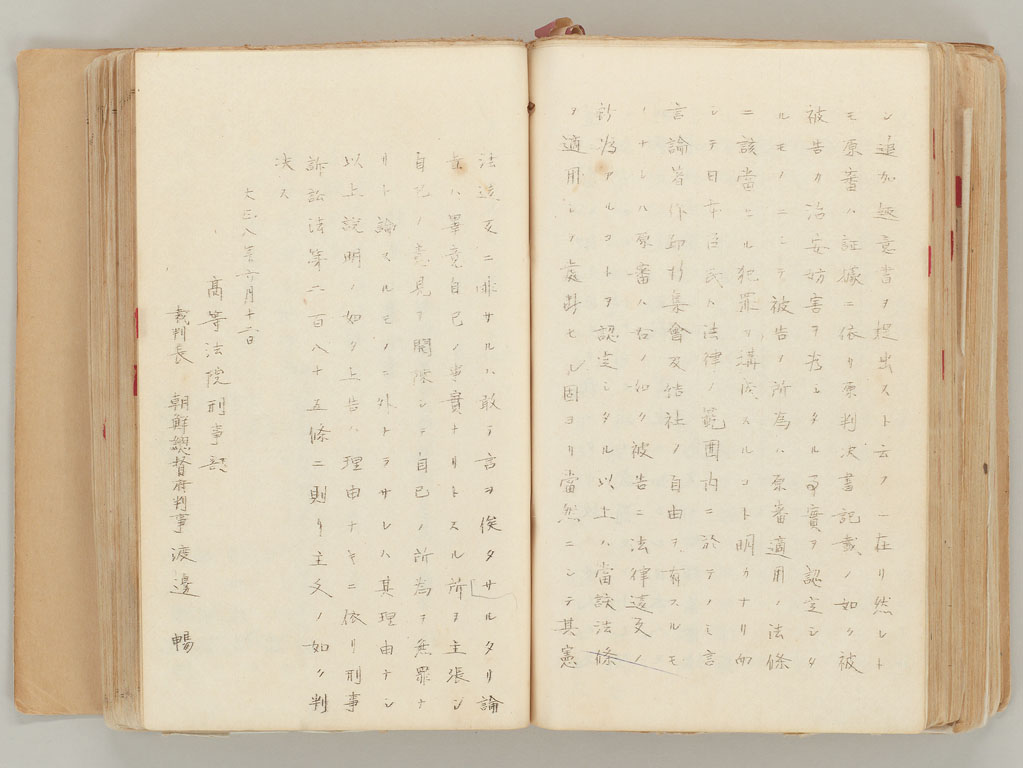 ン追加趣意書ヲ提出スト云フニ在リ然レト
モ原審ハ証據ニ依リ原判決書記載ノ如ク被
被告カ治安妨害ヲ為シタル事實ヲ認定シタ
ルモノニシテ被告ノ所為ハ原審適用ノ法條
ニ該當スル犯罪ヲ構成スルコト明カナリ而
シテ日本臣民ハ法律ノ範圍内ニ於テノミ言
言論著作印行集會及結社ノ自由ヲ有スルモ
ノナレハ原審ハ右ノ如ク被告ニ法律違反ノ
行為アルコトヲ認定シタル以上ハ當該法條
ヲ適用シテ處断セルハ固ヨリ當然ニシテ其憲
法違反ニ非サルハ敢テ言ヲ俟タサルタリ論
旨ハ畢竟自己ノ事實ナリトスル所ヲ主張シ
自己ノ意見ヲ開陳シテ自己ノ所為ヲ無罪ナ
リト論スルモノニ外ナラサレハ其理由ナシ
以上説明ノ如ク上告ハ理由ナキニ依リ刑事
訴訟法第二百八十五條ニ則リ主文ノ如ク判
決ス
大正八年六月十二日
高等法院刑事部
裁判長 朝鮮總督府判事 渡邊 暢